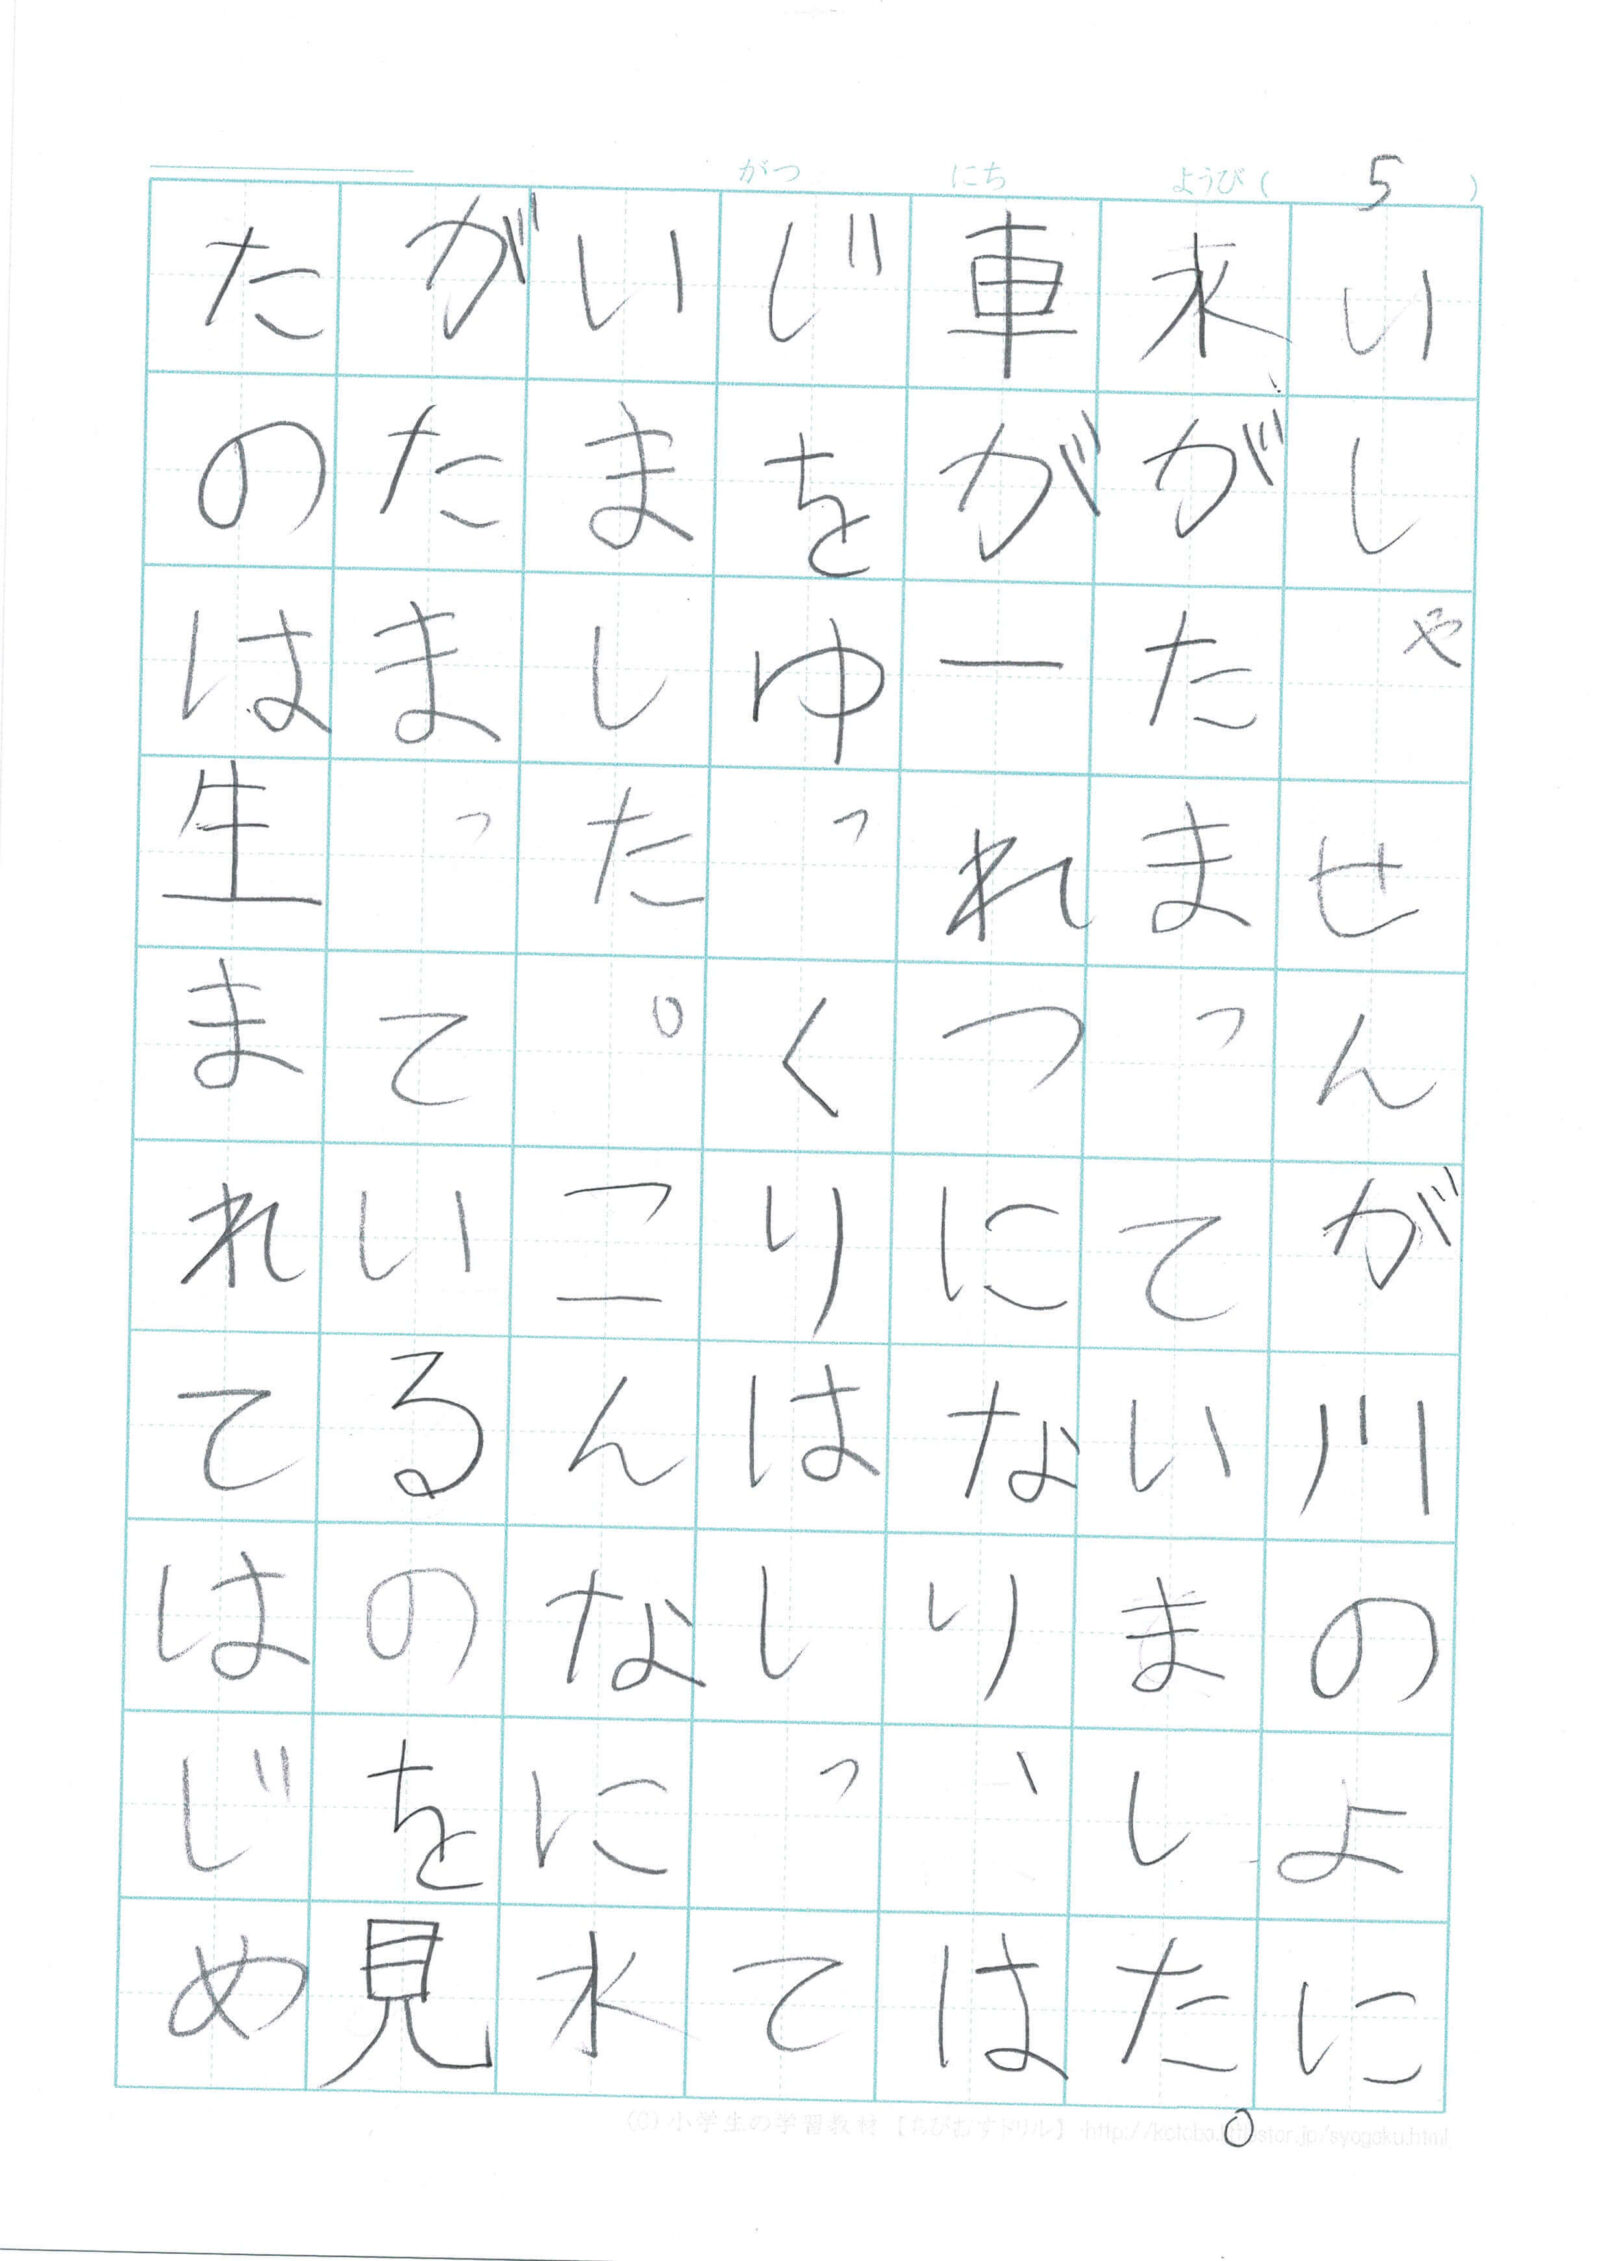 がつ にち ようび( 5 )
いしゃせんが川のよに
水がたまっていました。
車が一れつになり、は
じをゆっくりはしって
いました。こんなに水
がたまっているのを見
たのは生まれてはじめ
(C)小学生の学習教材【ちびむすドリル】 http://kotoba.littlestar.jp/syogaku.html